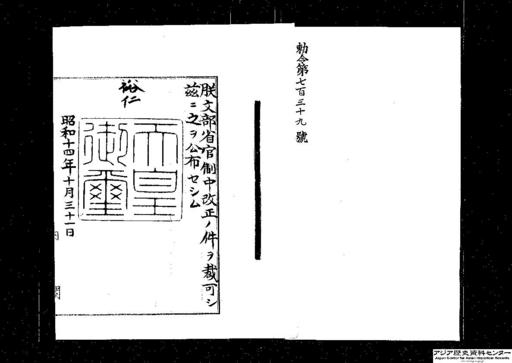 勅令第七百三十九號
朕文部省官制中改正ノ件ヲ裁可シ
茲ニ之ヲ公布セシム
裕仁
天皇
御璽
昭和十四年十月三十一日
内閣
アジア歴史資料センター
Japan Center for Asian Historical Records